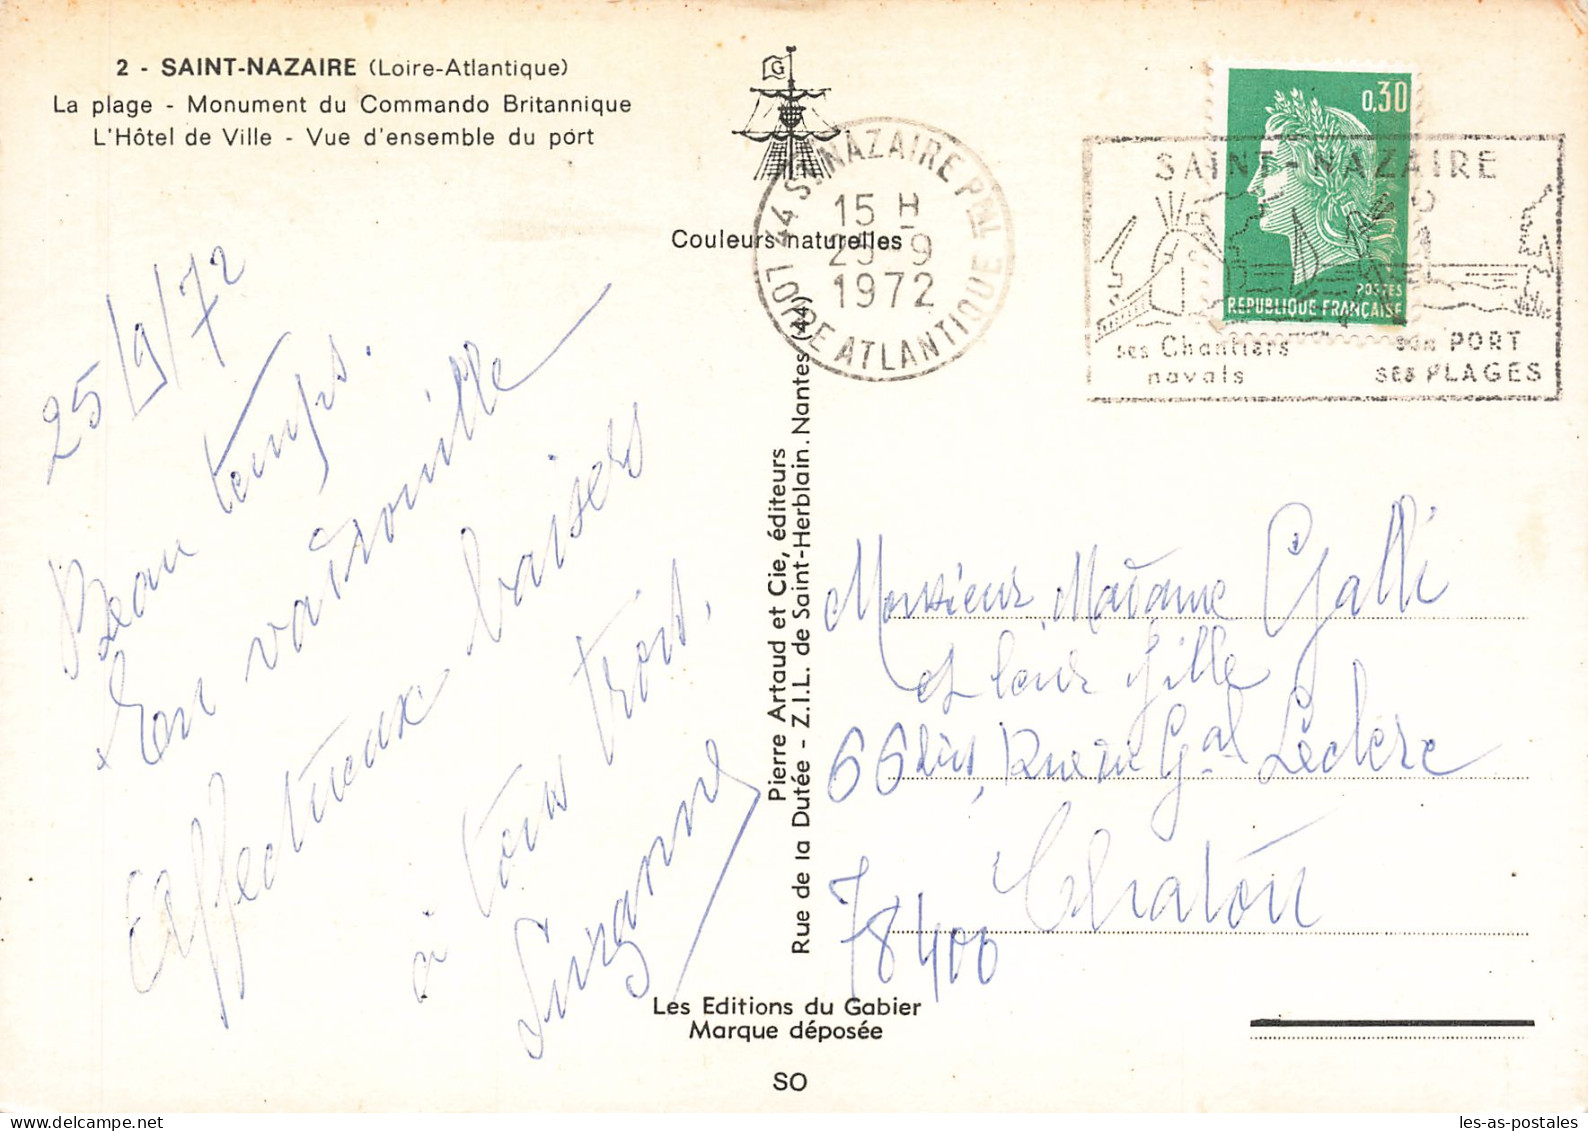 2 - SAINT-NAZAIRE (Loire-Atlantique)
La plage - Monument du Commando Britannique
L'Hôtel de Ville - Vue d'ensemble du port
G
Couleurs naturelles
44 ST NAZAIRE PPAL
15 H
25-9
1972
LOIRE ATLANTIQUE
0,30
POSTES
REPUBLIQUE FRANÇAISE
SAINT-NAZAIRE
ses Chantiers
navals
son PORT
SES PLAGES
25/9/72
Beau temps.
En vadrouille
Affectueux baisers
à tous trois.
Suzanne
Pierre Artaud et Cie, éditeurs
Rue de la Dutée - Z.I.L. de Saint-Herblain. Nantes (44)
Monsieur Madame Galli
et leur fille
66 bis, Rue du Gal Leclerc
Chatou
78400
Les Editions du Gabier
Marque déposée
SO
les-as-postales